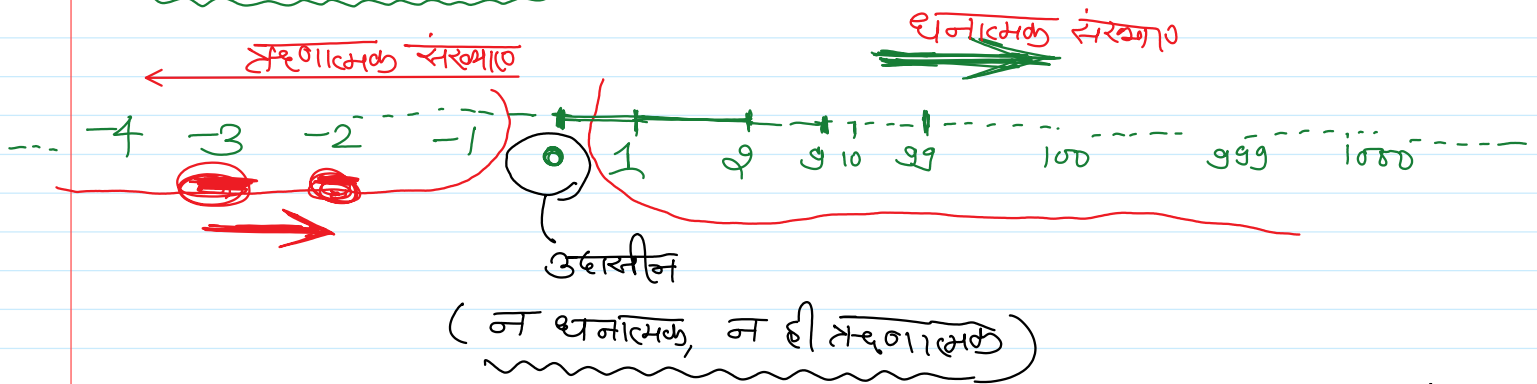 धनात्मक संख्याए
ऋणात्मक संख्याए
-4 -3 -2 -1 0 1 2 9 10 99 100 999 1000
उदासीन
( न धनात्मक, न ही ऋणात्मक )